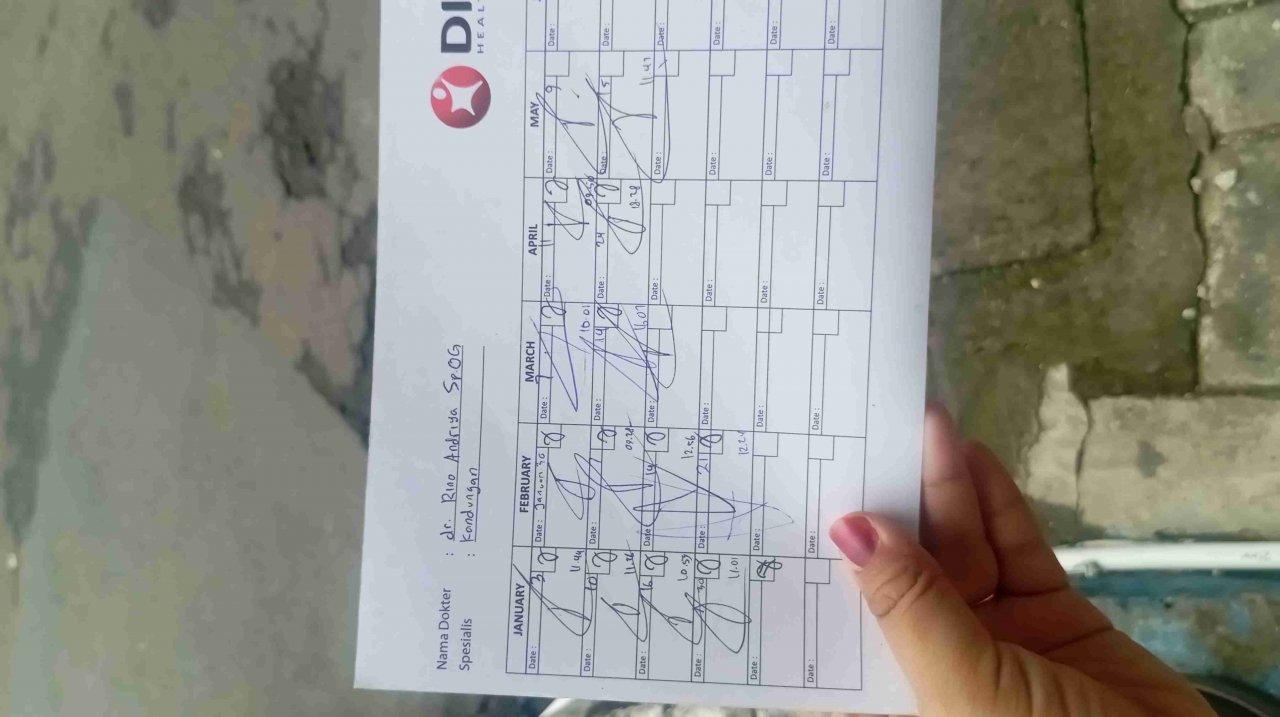 DI
HEAL
Nama Dokter : dr. Rino Andriya SpOG
Spesialis : Kandungan
JANUARY FEBRUARY MARCH APRIL MAY
Date : 3 Date : Januari 30 Date : 7 Date : 11 Date : 9 Date :
11.44 10.01 09.50
Date : 10 Date : Date : 14 Date : 24 Date : 15 Date :
11.26 09.28 11.07 12.28 11.47
Date : 16 Date : 14 Date : Date : Date : Date :
10.59 12.56
Date : 30 Date : 21 Date : Date : Date : Date :
11.01 12.21
Date : Date : Date : Date : Date : Date :
Date : Date : Date : Date : Date : Date :